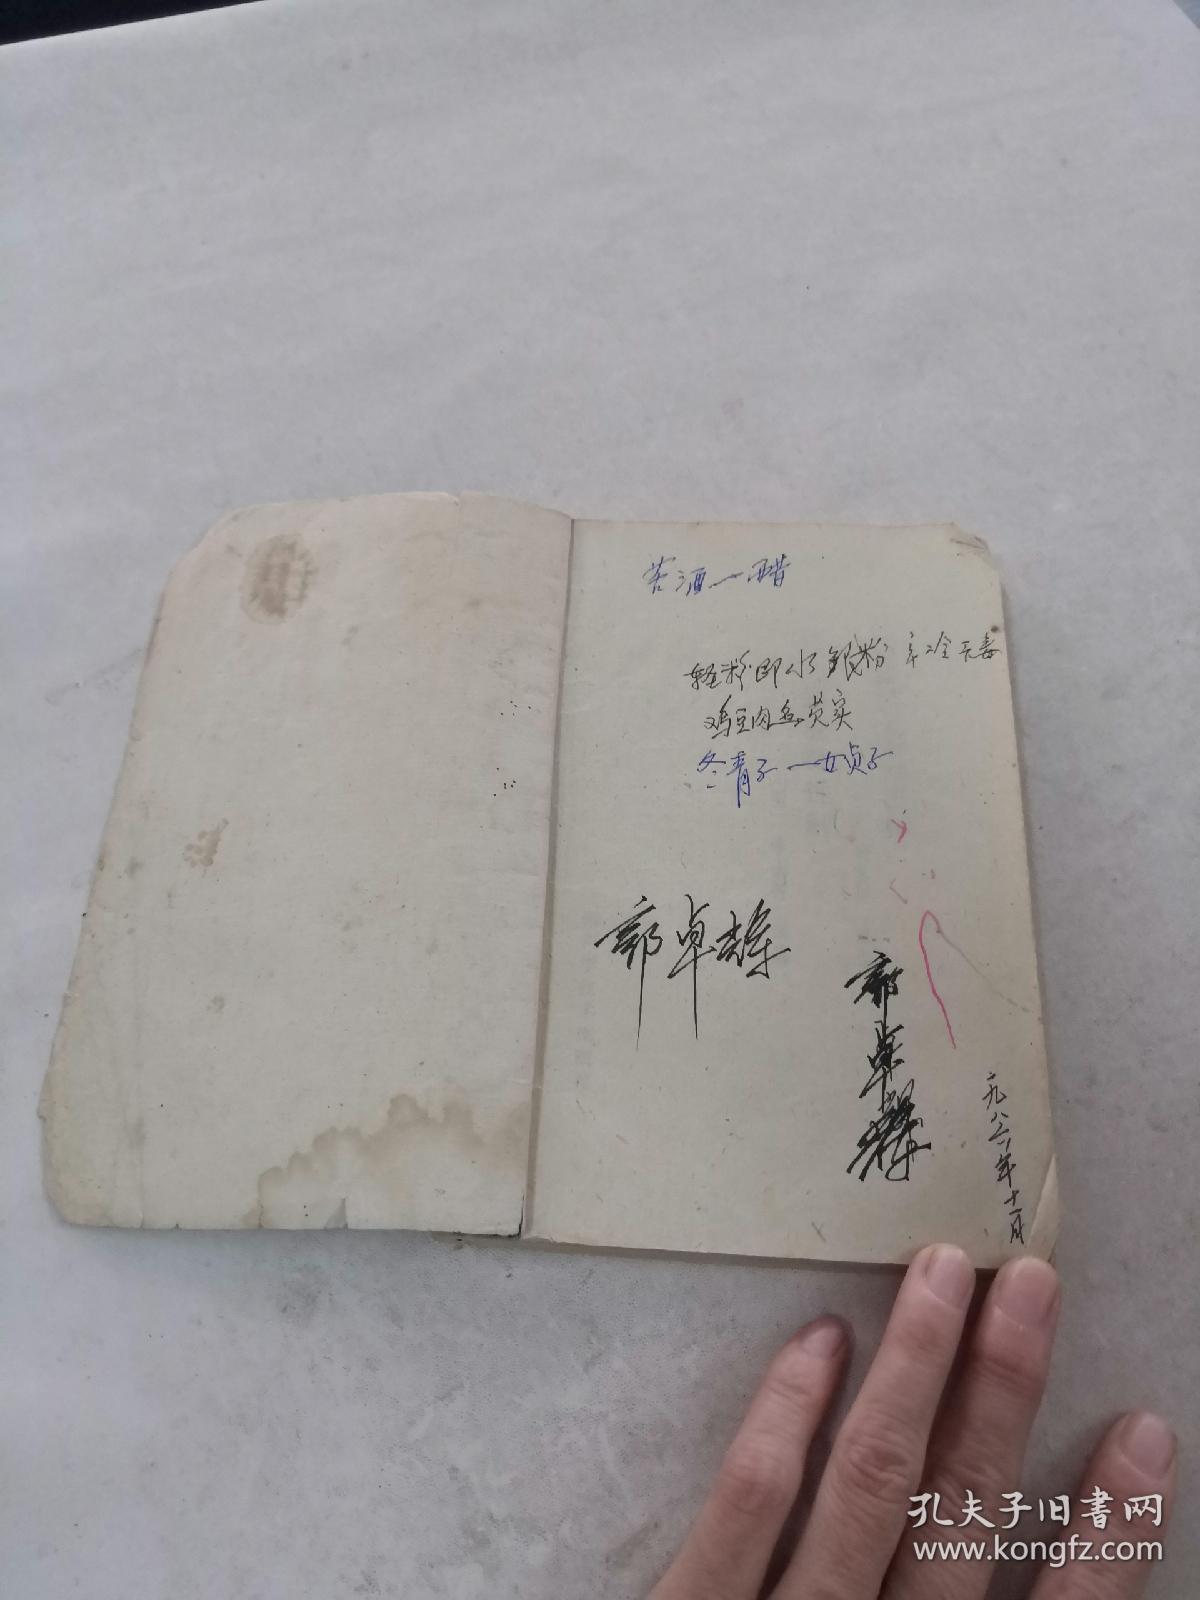 苦酒一醋
轻粉即水银粉 辛冷无毒
鸡豆肉即芡实
冬青子一女贞子
郭卓
郭卓
一九八六年十一月
孔夫子旧书网
www.kongfz.com